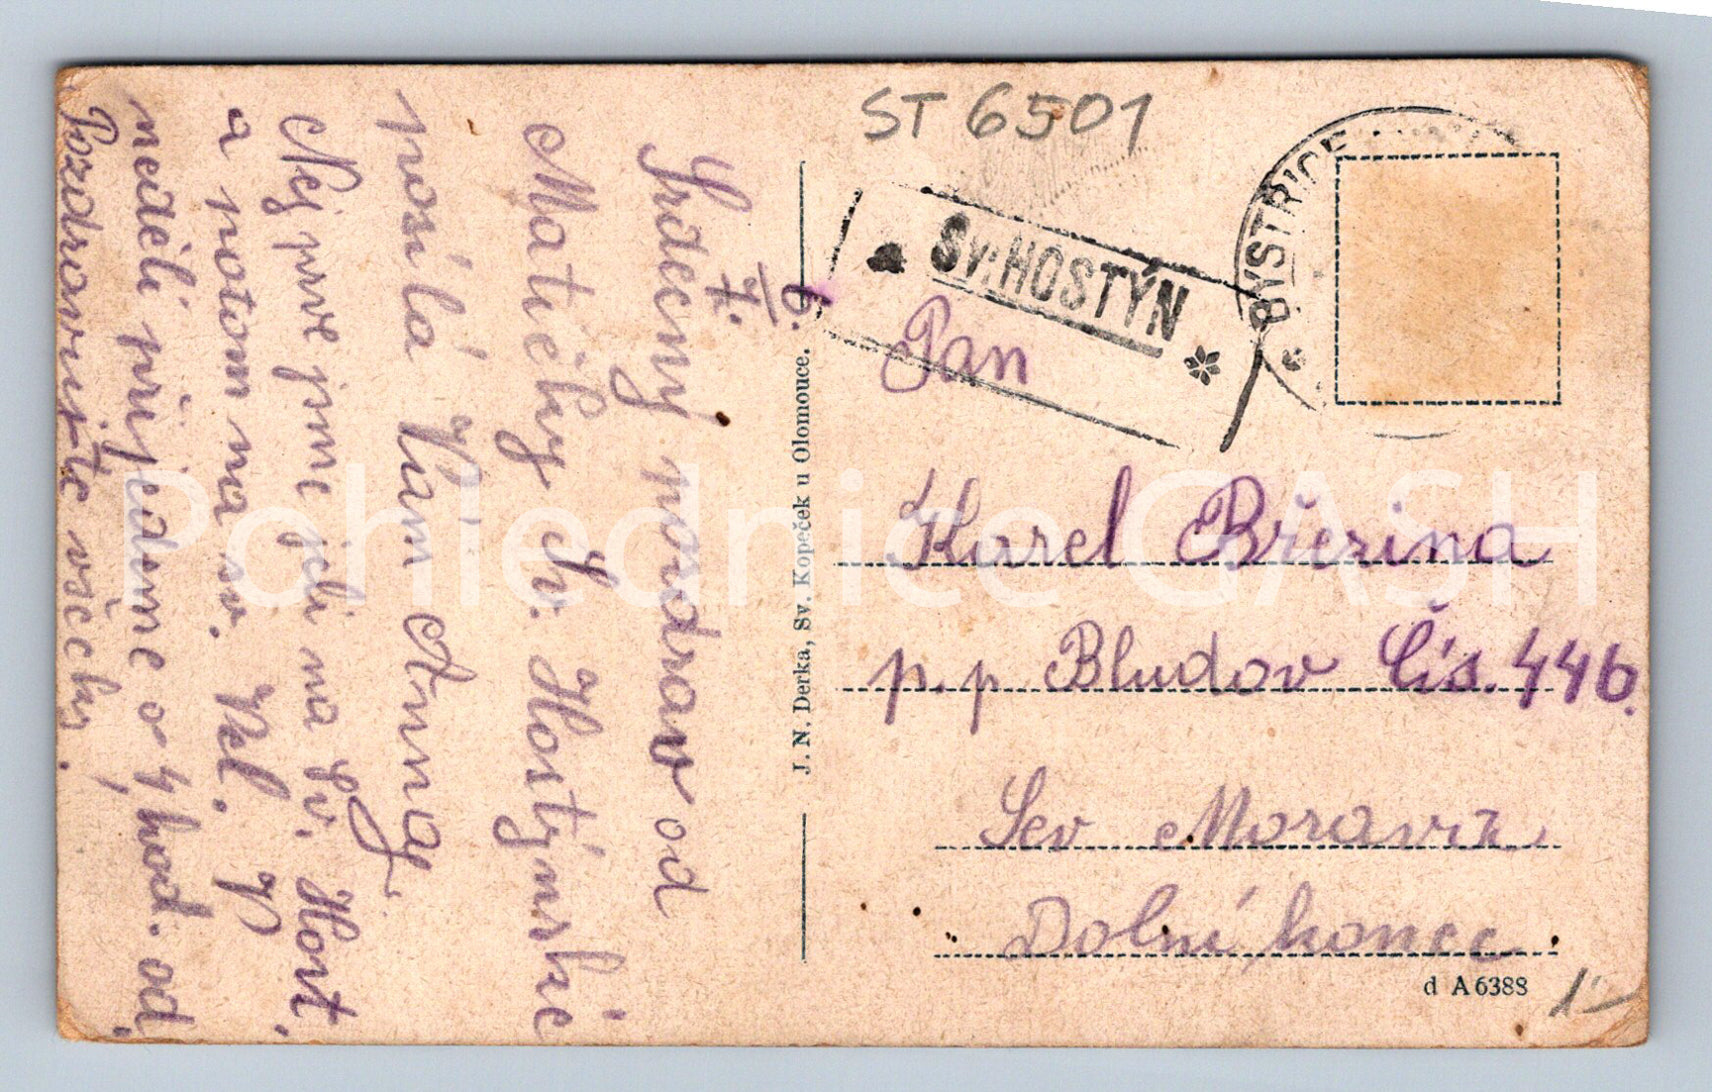 ST 6501
BYSTŘICE
Sv. HOSTÝN
6./7.
Srdečný pozdrav od
Matičky Sv. Hostýnské
posílá Vám Anna.
Nejprve jsme jeli na Sv. Host.
a potom na sv. Kl. V
neděli přijedeme o 4 hod. od.
Pozdravujte všecky.
J. N. Derka, Sv. Kopeček u Olomouce.
Pan
Karel Březina
p. p Bludov čís. 446.
Sev Morava
Dolní konec
d A 6388
1-
Pohlednice GASH